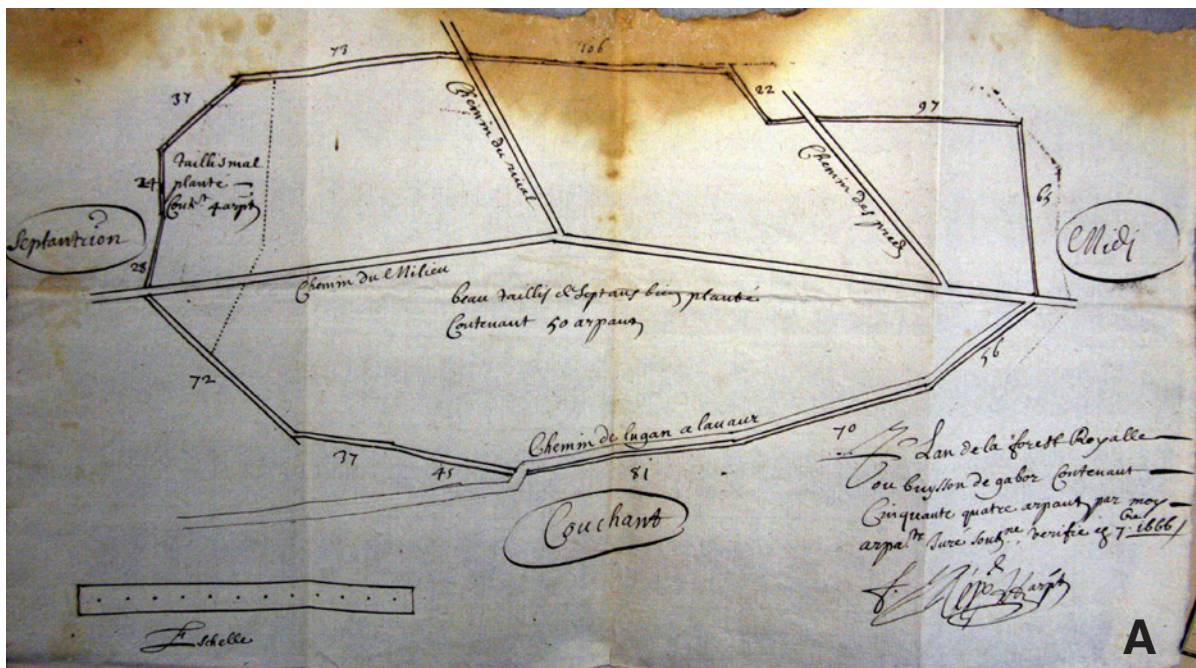 73
106
37
22
97
Chemin du rival
Chemin des pred
taillis mal
planté
Cont.t 4 arpt
24
65
Septantrion
Midj
28
Chemin du Milieu
beau taillis de Septans bien planté
Contenant 50 arpans
72
56
Chemin de lugan a lavaur
37
45
81
70
Couchant
Plan de la forest Royalle
ou buysson de gabor Contenant
Cinquante quatre arpans par moy
arpa.tr Juré soub.ne verifié 7.bre 1666
Eschelle
A